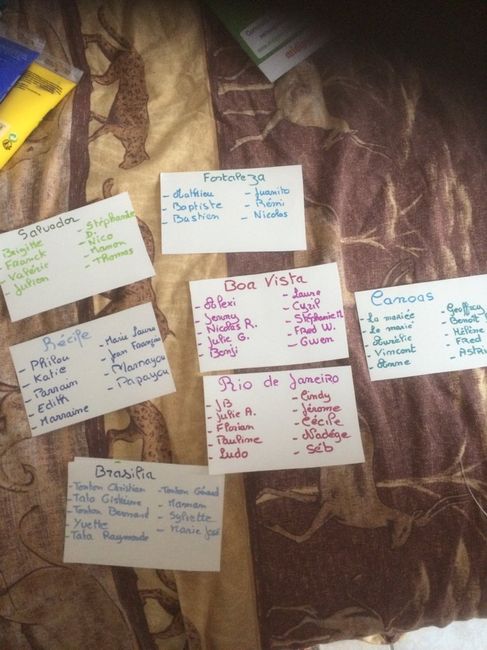 Fortaleza
- Mathieu - Juanito
- Baptiste - Rémi
- Bastien - Nicolas
Salvador
- Brigitte - Stéphanie D.
- Franck - Nico
- Valérie - Manon
- Julien - Thomas
Boa Vista
- Alexi - Laure
- Jenny - Cyril
- Nicolas R. - Stéphanie M.
- Julie G. - Fred W.
- Benji - Gwen
Canoas
- La mariée - Geoffrey
- Le marié - Benoit
- Aurélie - Hélène
- Vincent - Fred
- Anne - Astri
Récife
- Philou - Marie Laure
- Katie - Jean François
- Parrain - Mamayou
- Edith - Papayou
- Marraine
Rio de Janeiro
- JB - Cindy
- Julie A. - Jérôme
- Florian - Cécile
- Pauline - Nadège
- Ludo - Séb
Brasilia
- Tonton Christian - Tonton Gérard
- Tata Gislaine - Maman
- Tonton Bernard - Sylvette
- Yvette - Marie José
- Tata Raymonde